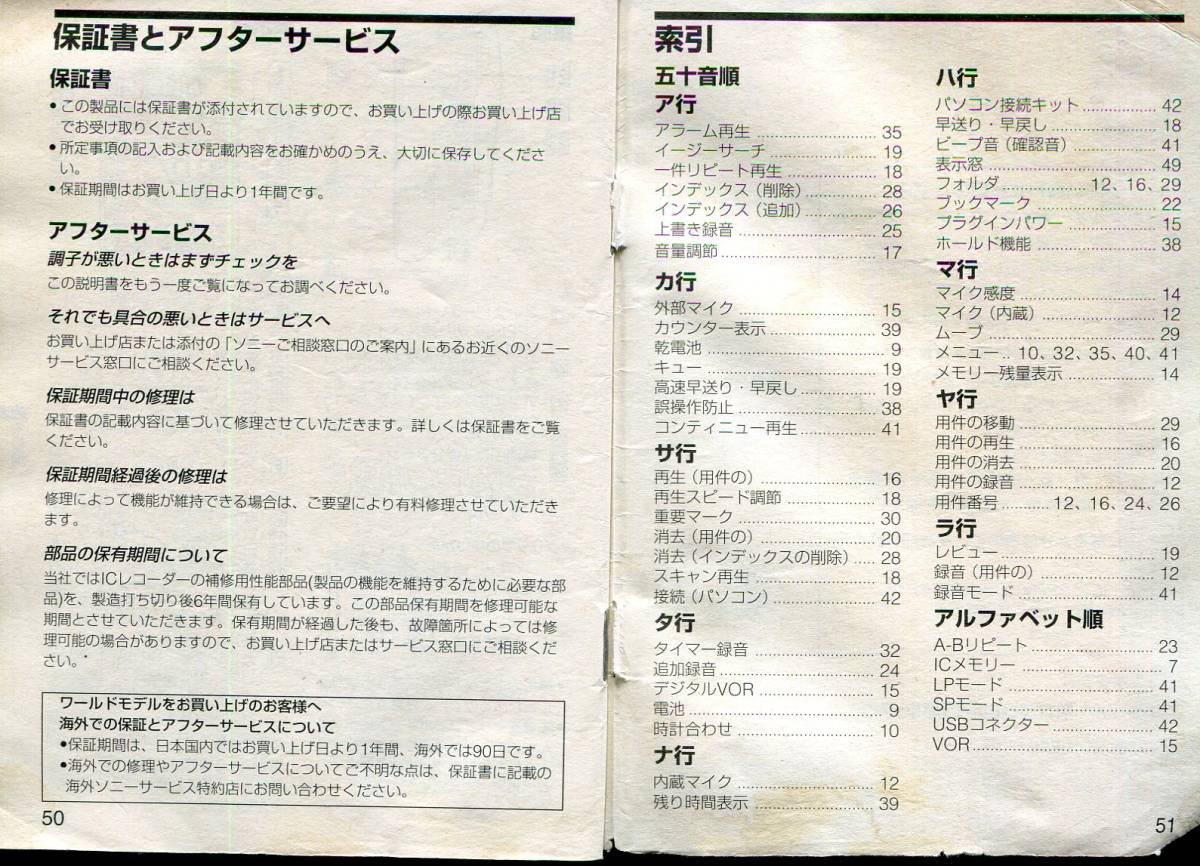 保証書とアフターサービス
保証書
•この製品には保証書が添付されていますので、お買い上げの際お買い上げ店
でお受け取りください。
•所定事項の記入および記載内容をお確かめのうえ、大切に保存してくださ
い。
•保証期間はお買い上げ日より1年間です。
アフターサービス
調子が悪いときはまずチェックを
この説明書をもう一度ご覧になってお調べください。
それでも具合の悪いときはサービスへ
お買い上げ店または添付の「ソニーご相談窓口のご案内」にあるお近くのソニー
サービス窓口にご相談ください。
保証期間中の修理は
保証書の記載内容に基づいて修理させていただきます。詳しくは保証書をご覧
ください。
保証期間経過後の修理は
修理によって機能が維持できる場合は、ご要望により有料修理させていただき
ます。
部品の保有期間について
当社ではICレコーダーの補修用性能部品(製品の機能を維持するために必要な部
品)を、製造打ち切り後6年間保有しています。この部品保有期間を修理可能な
期間とさせていただきます。保有期間が経過した後も、故障箇所によっては修
理可能の場合がありますので、お買い上げ店またはサービス窓口にご相談くだ
さい。
ワールドモデルをお買い上げのお客様へ
海外での保証とアフターサービスについて
•保証期間は、日本国内ではお買い上げ日より1年間、海外では90日です。
•海外での修理やアフターサービスについてご不明な点は、保証書に記載の
海外ソニーサービス特約店にお問い合わせください。
50
索引
五十音順
ア行
アラーム再生 ........ 35
イージーサーチ ........ 19
一件リピート再生 ........ 18
インデックス（削除） ........ 28
インデックス（追加） ........ 26
上書き録音 ........ 25
音量調節 ........ 17
カ行
外部マイク ........ 15
カウンター表示 ........ 39
乾電池 ........ 9
キュー ........ 19
高速早送り・早戻し ........ 19
誤操作防止 ........ 38
コンティニュー再生 ........ 41
サ行
再生（用件の） ........ 16
再生スピード調節 ........ 18
重要マーク ........ 30
消去（用件の） ........ 20
消去（インデックスの削除） .... 28
スキャン再生 ........ 18
接続（パソコン） ........ 42
タ行
タイマー録音 ........ 32
追加録音 ........ 24
デジタルVOR ........ 15
電池 ........ 9
時計合わせ ........ 10
ナ行
内蔵マイク ........ 12
残り時間表示 ........ 39
ハ行
パソコン接続キット ........ 42
早送り・早戻し ........ 18
ビープ音（確認音） ........ 41
表示窓 ........ 49
フォルダ ........ 12、16、29
ブックマーク ........ 22
プラグインパワー ........ 15
ホールド機能 ........ 38
マ行
マイク感度 ........ 14
マイク（内蔵） ........ 12
ムーブ ........ 29
メニュー .. 10、32、35、40、41
メモリー残量表示 ........ 14
ヤ行
用件の移動 ........ 29
用件の再生 ........ 16
用件の消去 ........ 20
用件の録音 ........ 12
用件番号 ........ 12、16、24、26
ラ行
レビュー ........ 19
録音（用件の） ........ 12
録音モード ........ 41
アルファベット順
A-Bリピート ........ 23
ICメモリー ........ 7
LPモード ........ 41
SPモード ........ 41
USBコネクター ........ 42
VOR ........ 15
51